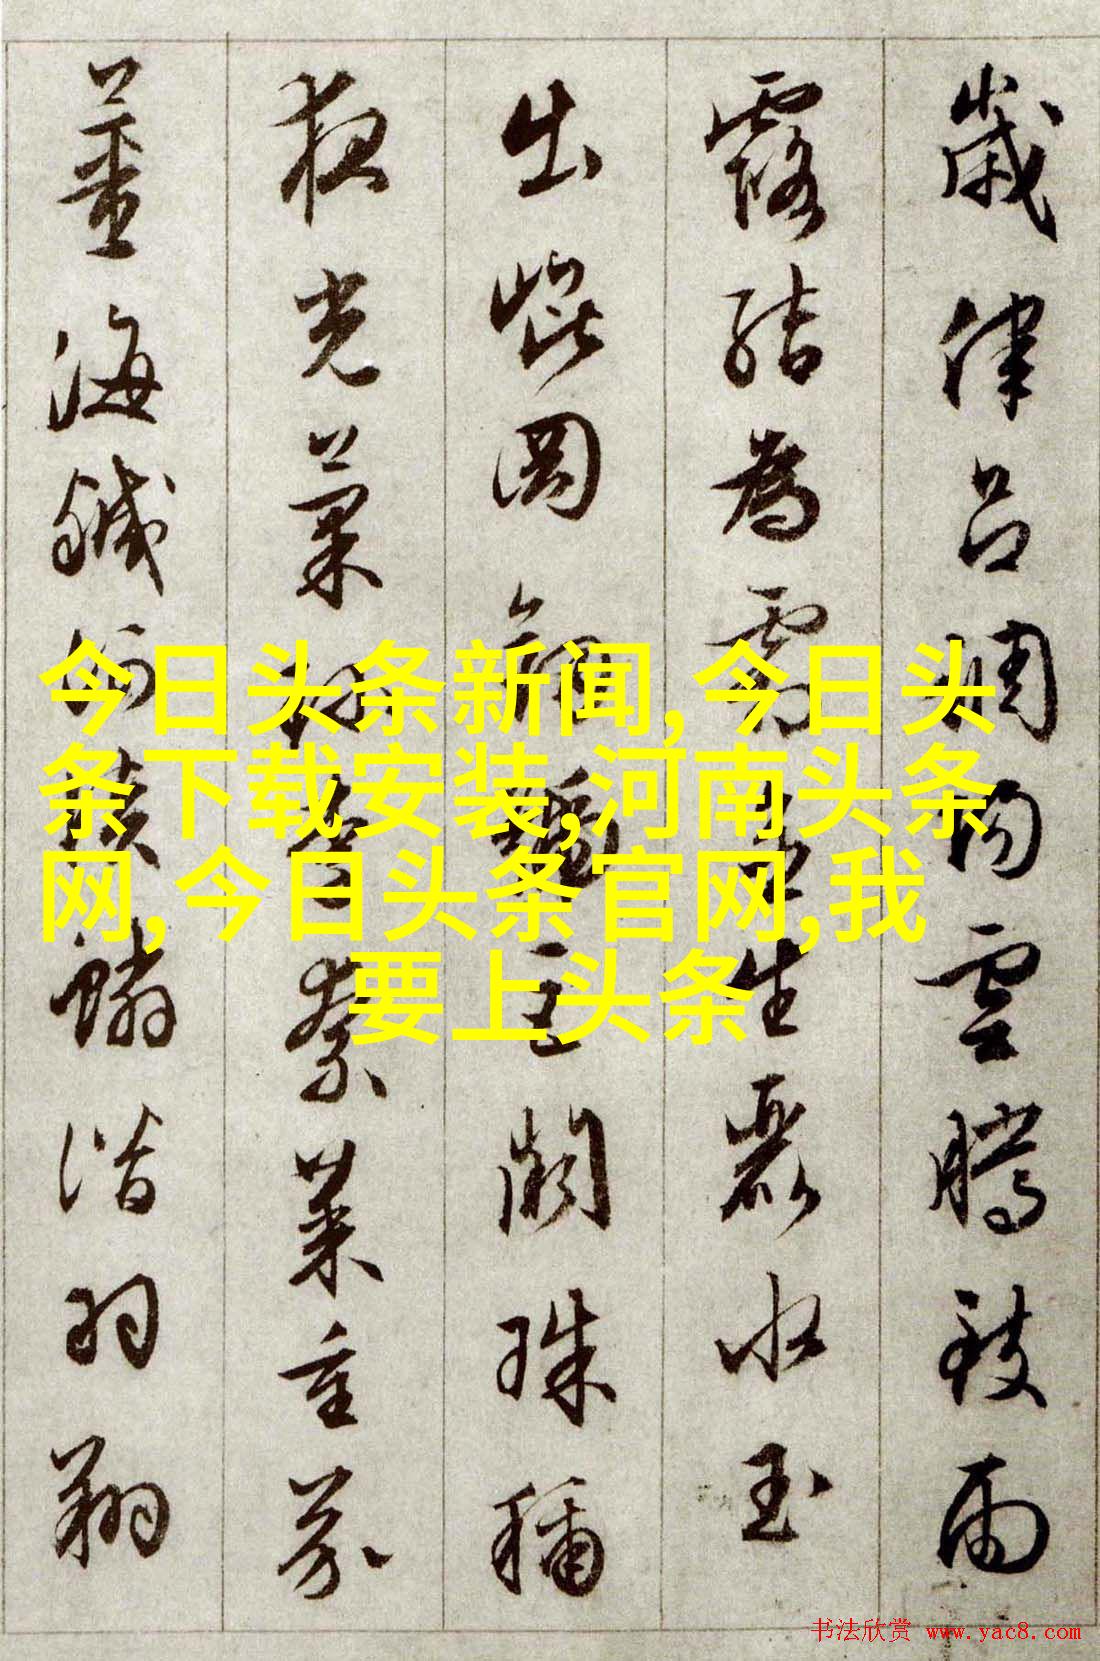 歲律呂調陽雲騰致雨
露結為霜金生麗水玉
出崐岡劍號巨闕珠稱
夜光菓珍李柰菜重芥
薑海鹹河淡鱗潛羽翔
今日头条新闻,今日头
条下载安装,河南头条
网,今日头条官网,我
要上头条
书法欣赏 www.yac8.com